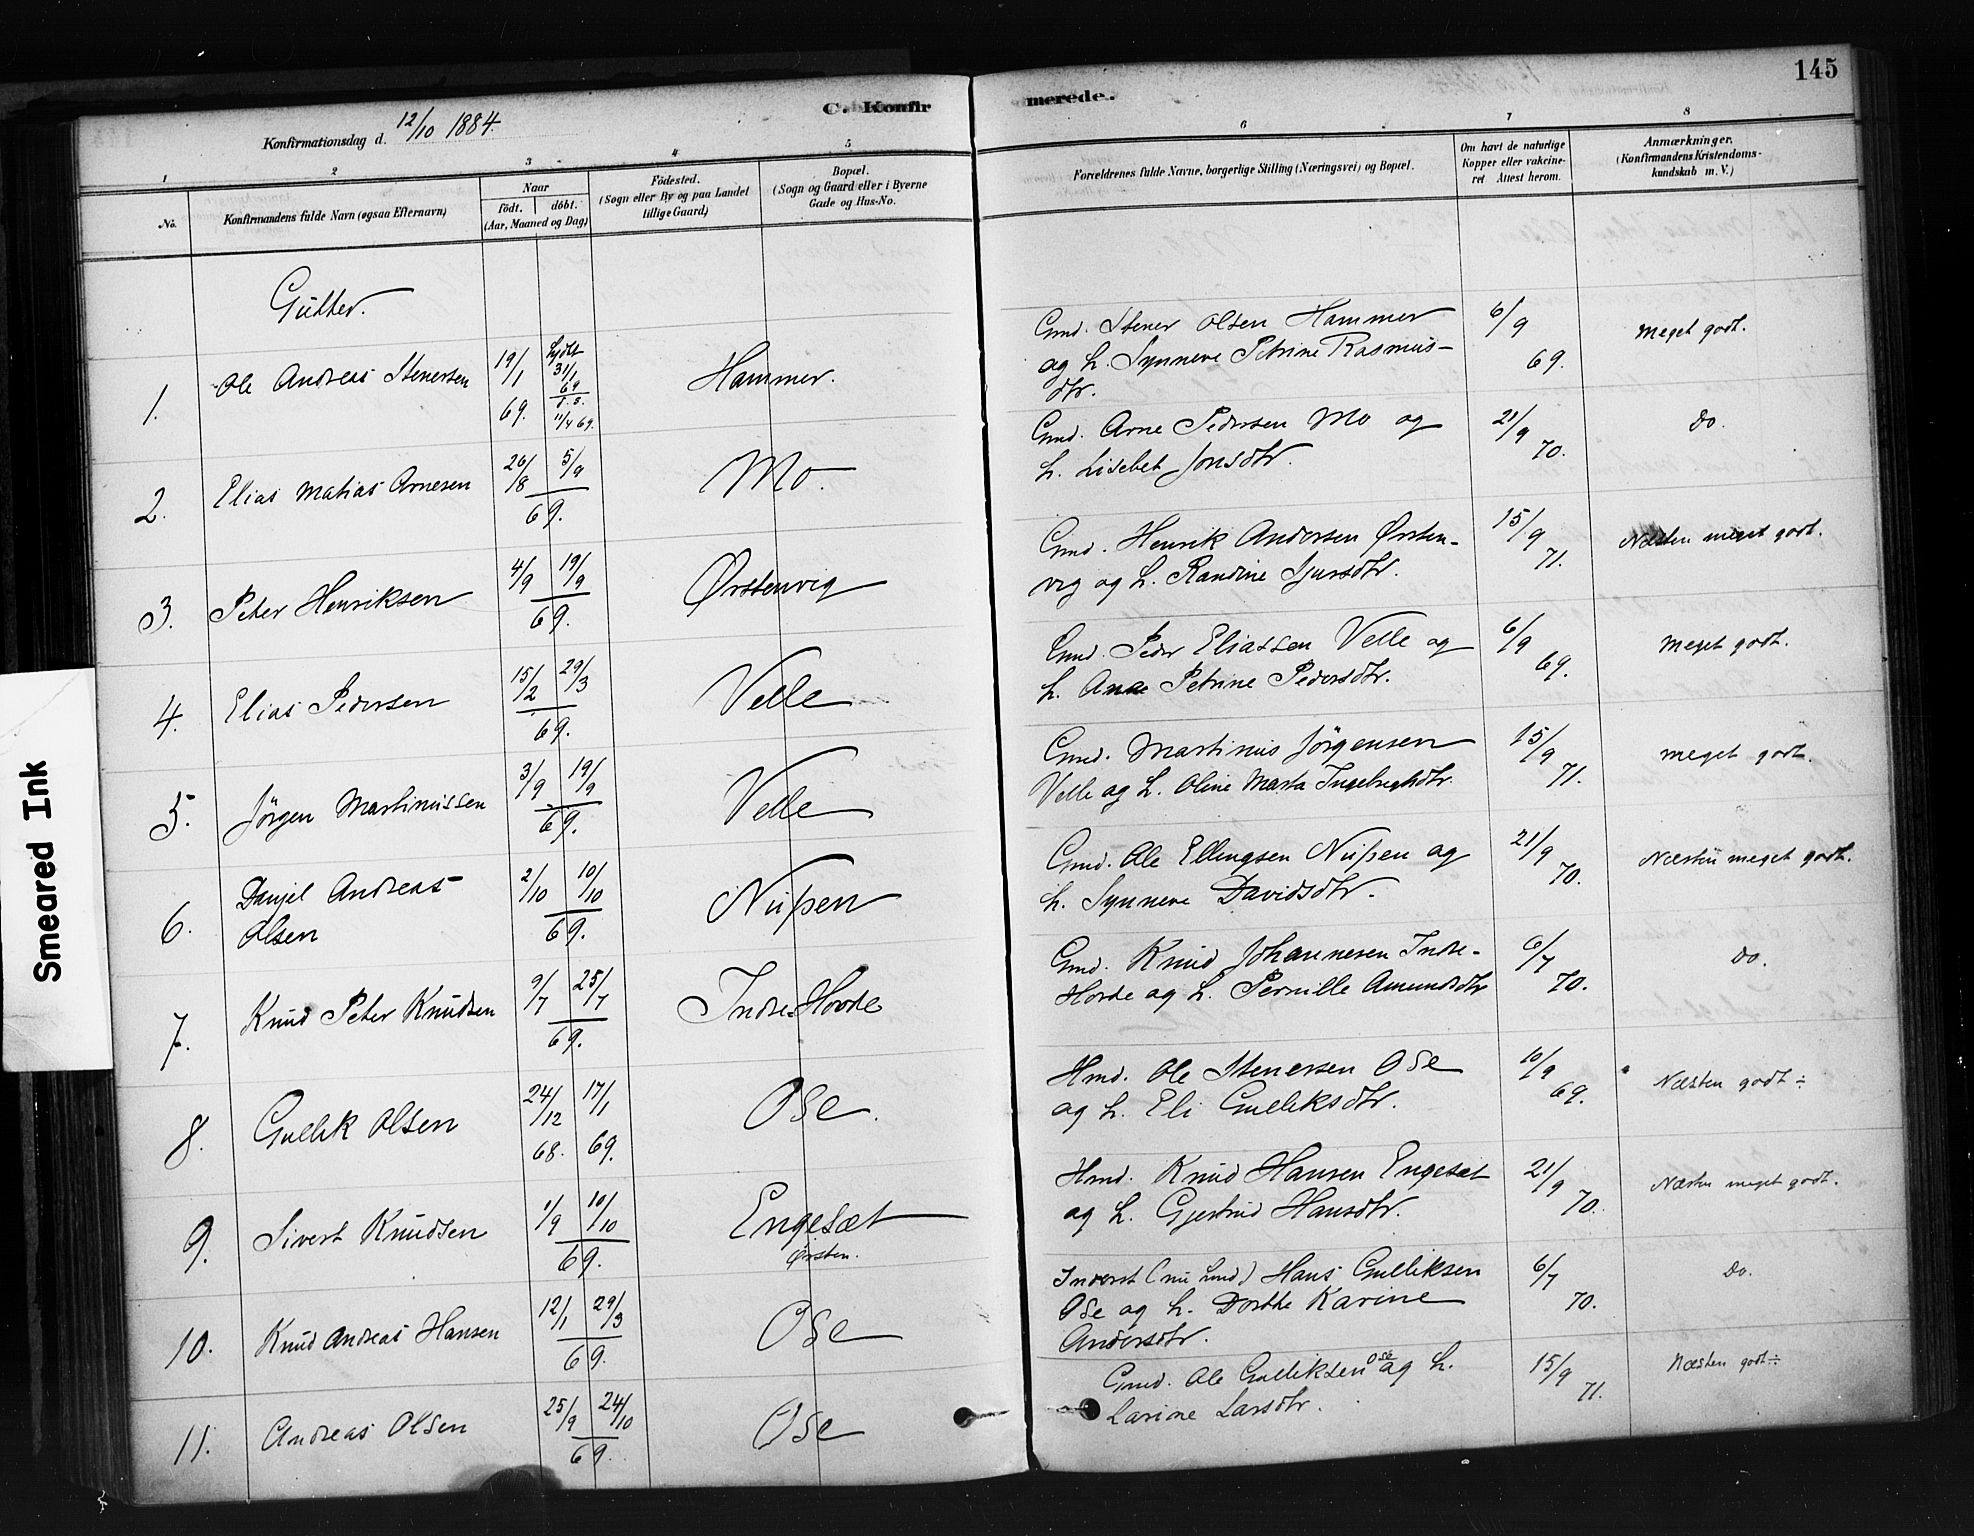 145
C. Konfirmerede.
Konfirmationsdag d. 12/10 1884.
1 2 3 4 5 6 7 8
No.
Konfirmandens fulde Navn (ogsaa Efternavn)
Naar
født. døbt.
(Aar, Maaned og Dag)
Fødested.
(Sogn eller By og paa Landet
tillige Gaard)
Bopæl.
(Sogn og Gaard eller i Byerne
Gade og Hus-No.
Forældrenes fulde Navne, borgerlige Stilling (Næringsvei) og Bopæl.
Om havt de naturlige
Kopper eller vakcine-
ret Attest herom.
Anmærkninger.
(Konfirmandens Kristendoms-
kundskab m. V.)
Gutter.
1. Ole Andreas Stenersen 19/1 69. hjdbt 31/1 69 11/4 69. Hammer.
Gmd. Stener Olsen Hammer
og h. Synneve Petrine Rasmus-
dtr.
6/9 69. Meget godt.
2. Elias Matias Arnesen 26/8 5/9 69. Mo.
Gmd. Arne Pedersen Mo og
h. Lisebet Jonsdtr.
21/9 70. Do.
3. Peter Henriksen 4/9 19/9 69. Ørstenvig
Gmd. Henrik Andersen Ørsten-
vig og h. Randine Sjursdtr.
15/9 71. Næsten meget godt.
4. Elias Pedersen 15/2 29/3 69. Velle
Gmd. Peder Eliassen Velle og
h. Ane Petrine Pedersdtr.
6/9 69. Meget godt.
5. Jörgen Martinussen 3/9 19/9 69. Velle
Gmd. Martinus Jörgensen
Velle og h. Oline Marta Ingebregtsdtr.
15/9 71. meget godt.
6. Danjel Andreas
Olsen 2/10 10/10 69. Nupen
Gmd. Ole Ellingsen Nupen og
h. Synneve Davidsdtr.
21/9 70. Næsten meget godt.
7. Knud Peter Knudsen 9/7 25/7 69. Indre-Hovde
Gmd. Knud Johannesen Indre-
Hovde og h. Pernille Amundsdtr
6/7 70. Do.
8. Gullik Olsen 24/12 68. 17/1 69. Ose.
Hmd. Ole Stenersen Ose
og h. Eli Gulliksdtr.
10/9 69. Næsten godt ÷
9. Sivert Knudsen 1/9 10/10 69. Engesæt
Ørsten.
Hmd. Knud Hansen Engesæt
og h. Gjertrud Hansdtr.
21/9 70. Næsten meget godt.
10. Knud Andreas Hansen 12/1 29/3 69. Ose
Inderst (nu hmd) Hans Gulliksen
Ose og h. Dorthe Karine
Andersdtr.
6/7 70. Do.
11. Andreas Olsen 25/9 24/10 69. Ose
Gmd. Ole Gulliksen Ose og h.
Larine Larsdtr.
15/9 71. Næsten godt ÷
Smeared Ink